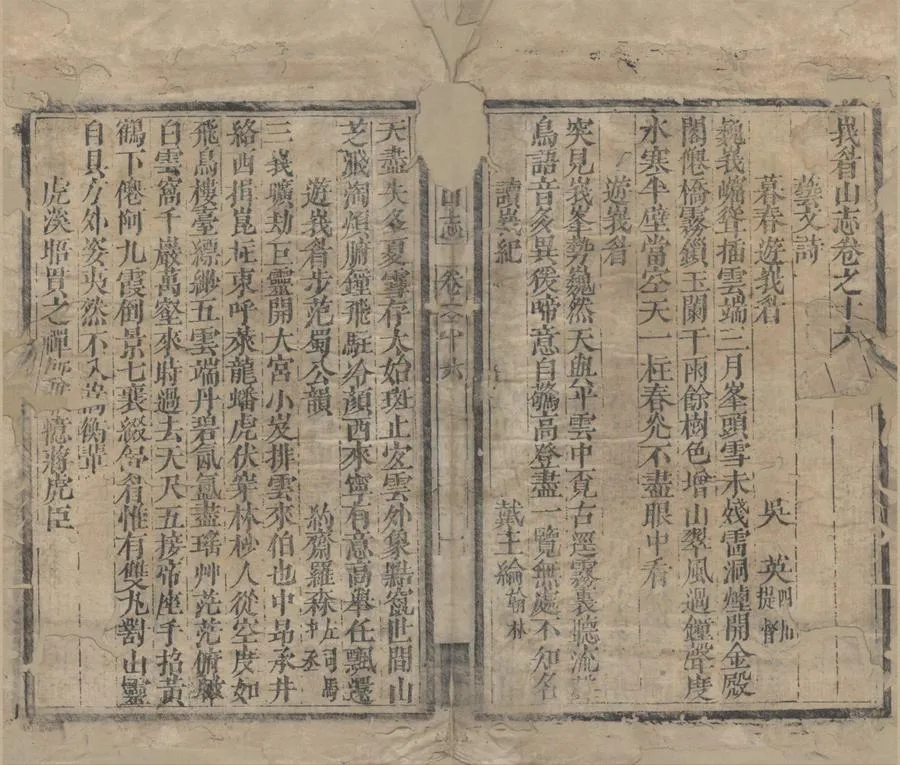 峩眷山志卷之十六
藝文詩
暮春遊峩眷 吳 英四川提督
巍峩巉聳插雲端三月峯頭雪未殘雷洞煙開金殿
閣僊橋霧鎖玉闌干雨餘樹色增山翠風過鐘聲度
水寒半壁當空天一柱春光不盡眼中看
遊峩眷
突見峩峯勢巍然天與平雲中覓古逕霧裏聽流
鳥語音多異猨啼意自驚高登盡一覽無處不知名
讀峩紀 戴王綸翰林
山志 卷之十六 一
天盡失冬夏雪存太始斑止定雲外象點竄世間山
芝殘淘煩腑鐘飛駐冷顏西來寧有意高舉任飄還
遊峩眷步范蜀公韻 約齋羅森左司馬
三峩曠劫巨靈開大宮小岌排雲來伯也中昂承井
絡西揖崑柱東呼萊龍蟠虎伏穿林杪人從空度如
飛鳥樓臺縹緲五雲端丹碧氤氳盡瑤艸茫茫俯
白雲窩千巖萬壑來時過去天尺五接帝座手招黃
鶴下僊阿九霞倒景七襄綴 惟有雙丸對山靈
自具方外姿夷然不入 衡輩
虎溪晤貫之禪 憶蔣虎臣